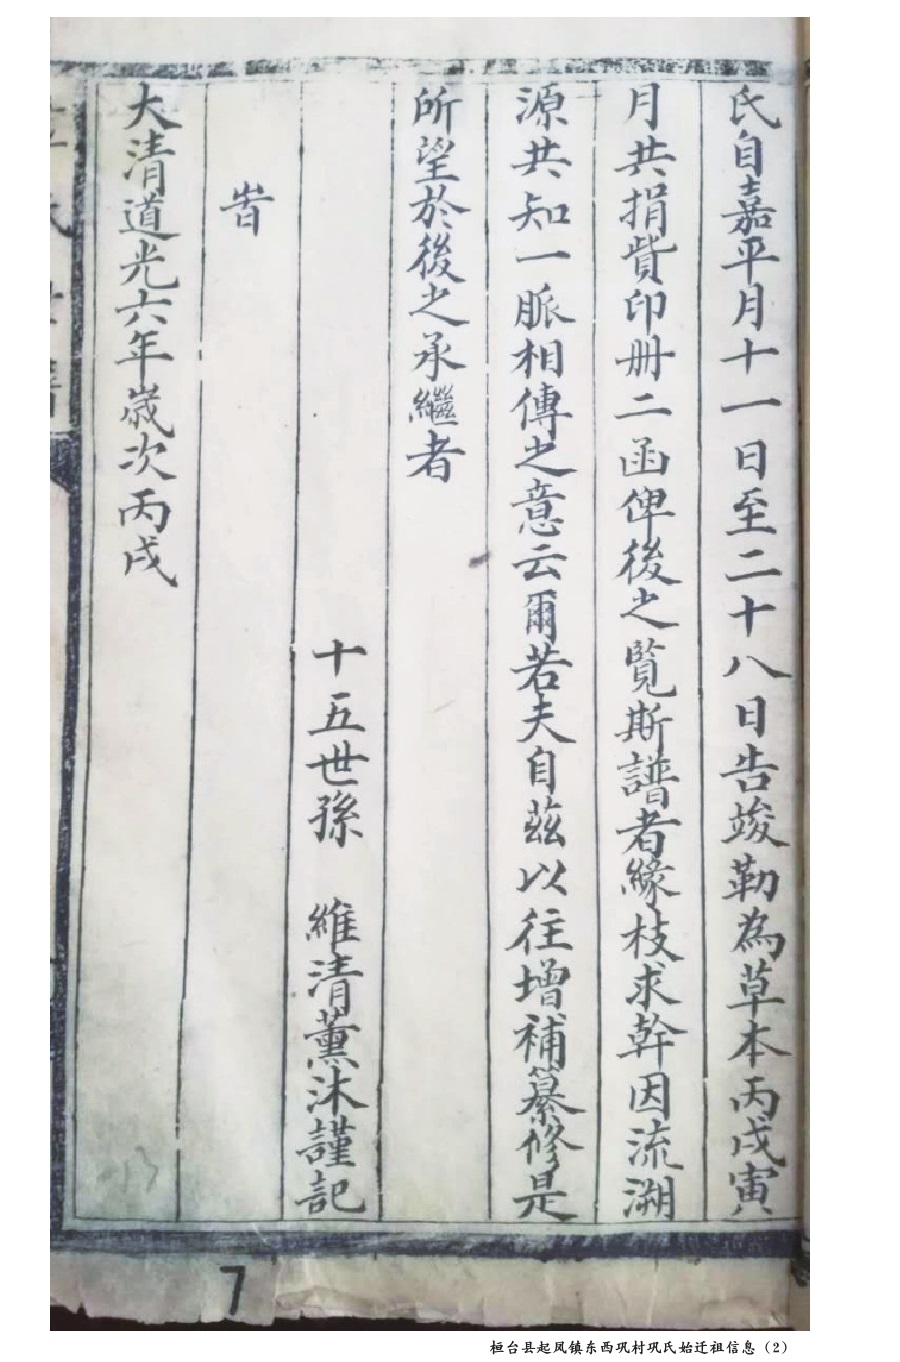 氏自嘉平月十一日至二十八日告竣勒為草本丙戌寅
月共捐貲印册二函俾後之覽斯譜者緣枝求幹因流溯
源共知一脈相傳之意云爾若夫自茲以往增補纂修是
所望於後之承繼者
十五世孫 維清薰沐謹記
旹
大清道光六年歲次丙戌
7
桓台县起凤镇东西巩村巩氏始迁祖信息（2）